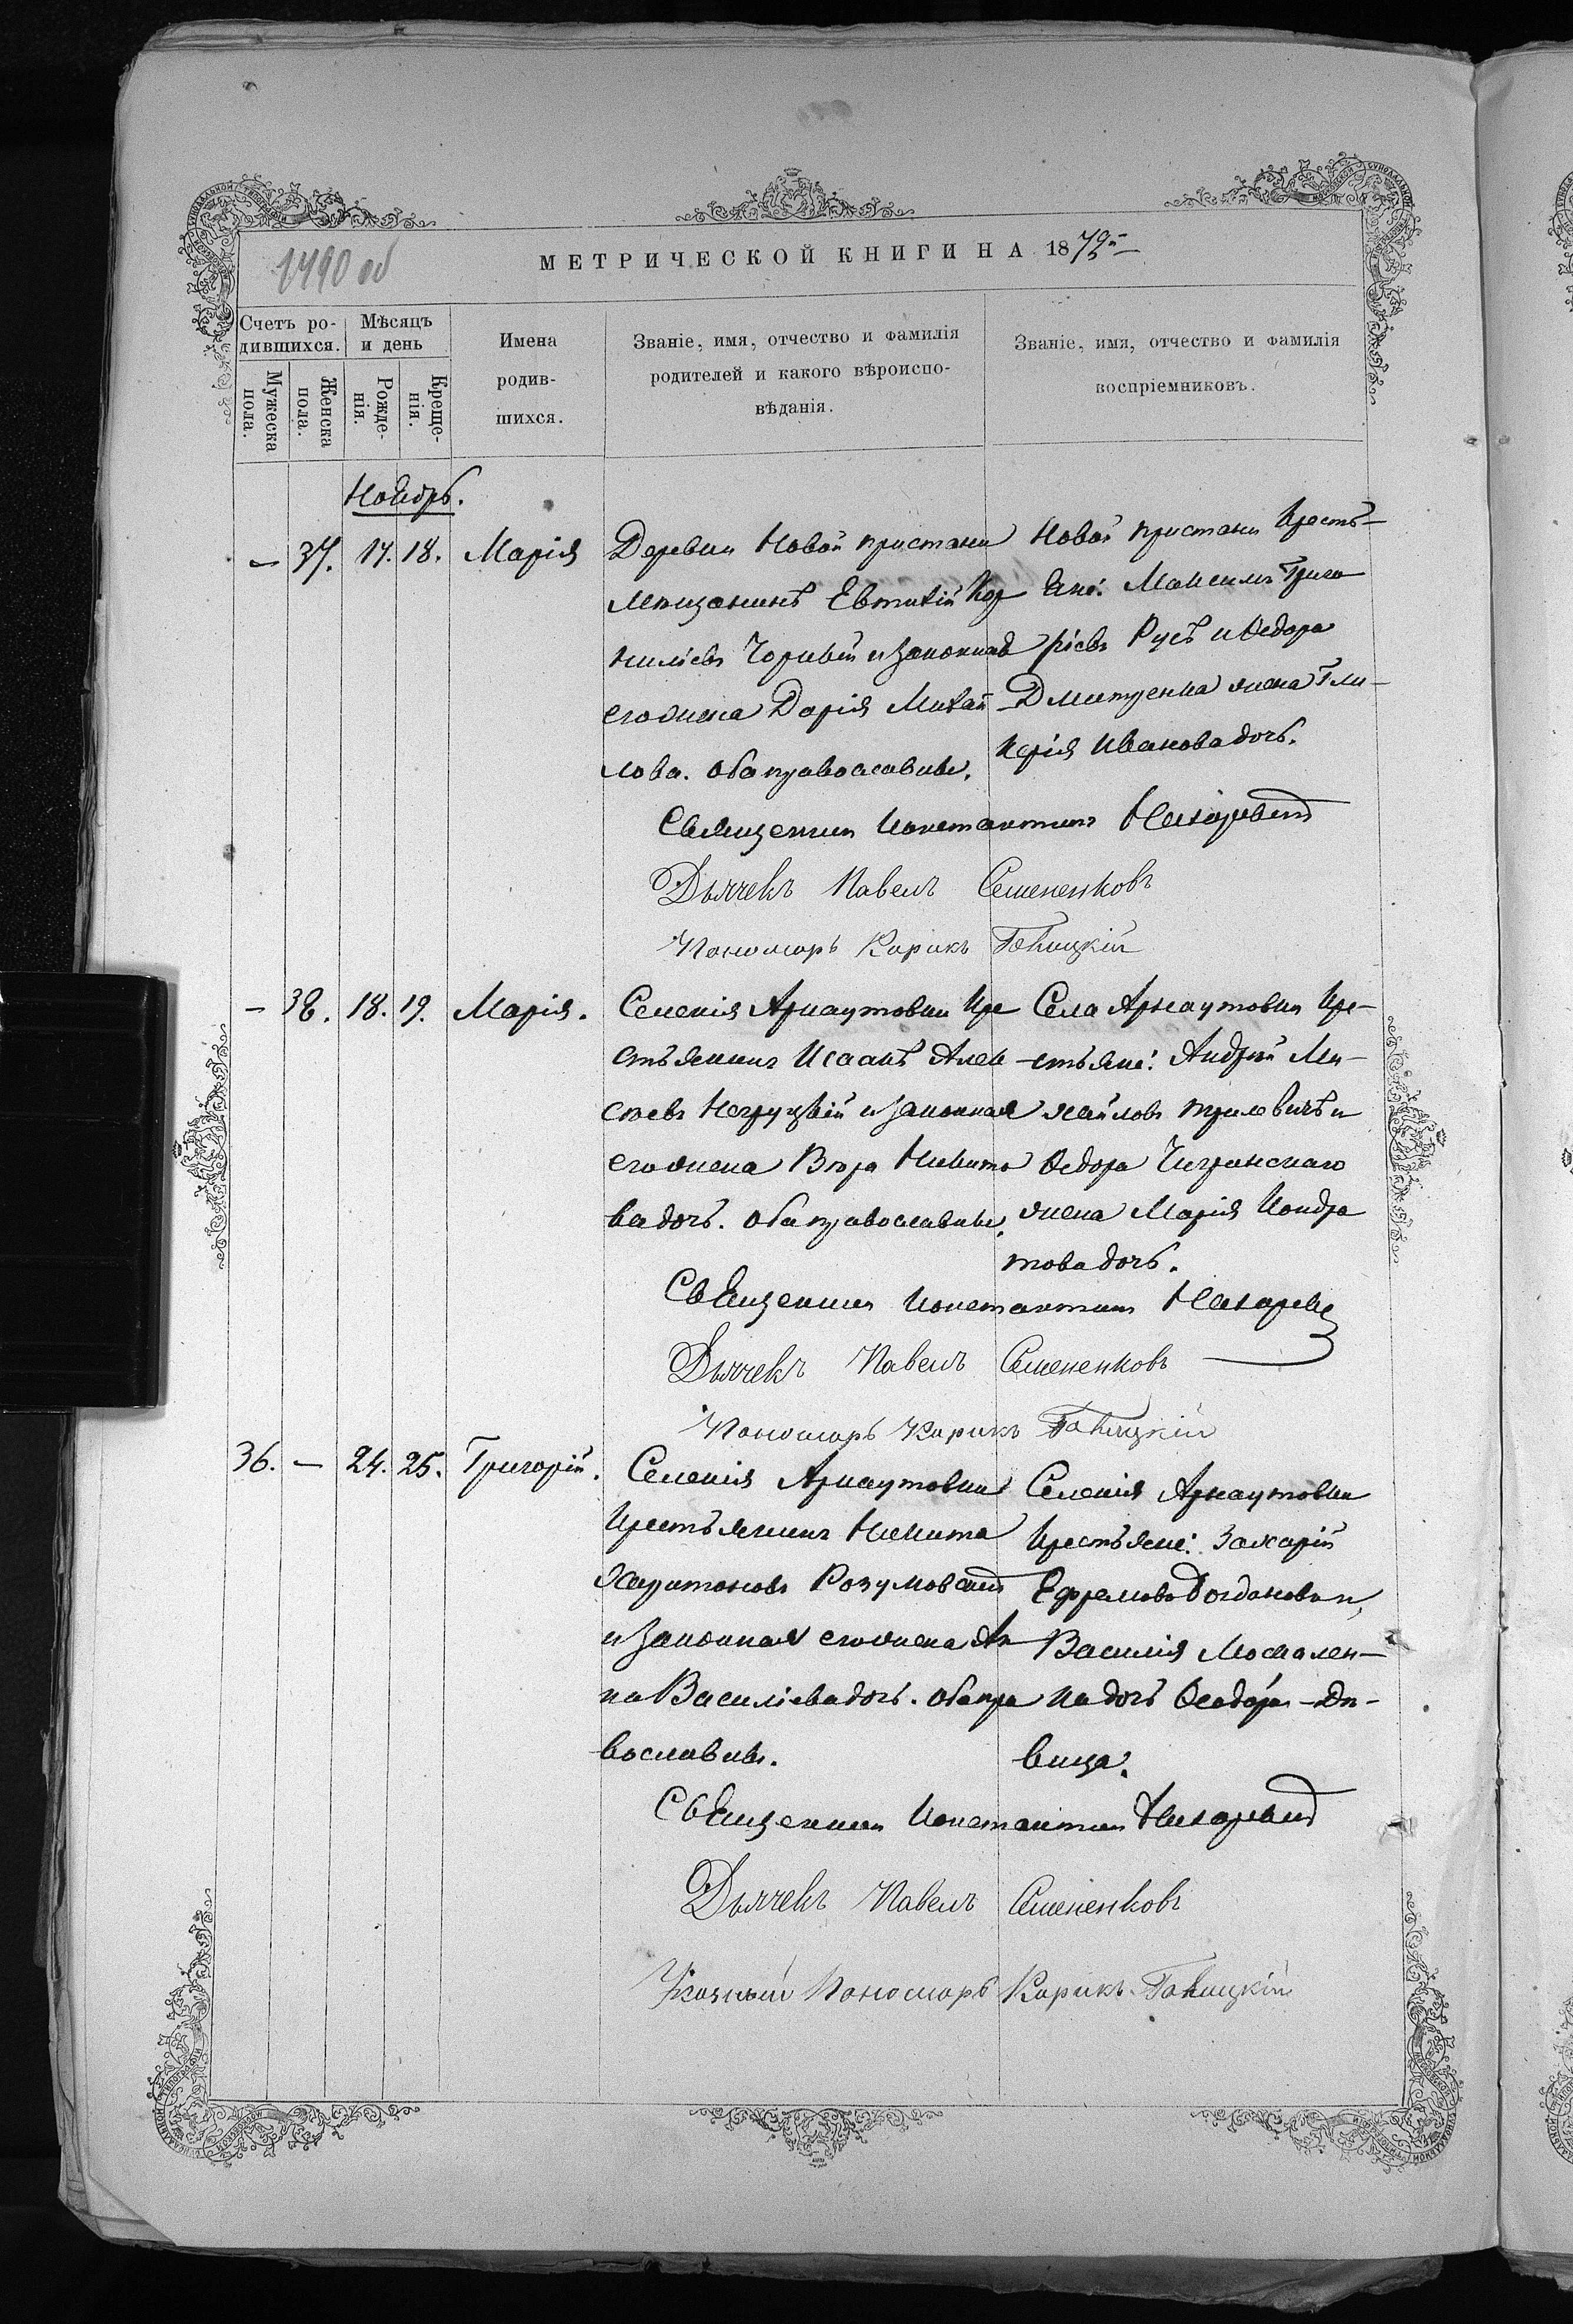 1490 об
МЕТРИЧЕСКОЙ КНИГИ НА 1879й
Счетъ ро-
дившихся.
Мужеска
пола.
Женска
пола.
Мѣсяцъ
и день
Рожде-
нія.
Креще-
нія.
Имена
родив-
шихся.
Званіе, имя, отчество и фамилія
родителей и какого вѣроиспо-
вѣданія.
Званіе, имя, отчество и фамилія
воспріемниковъ.
Ноябрь.
— 37. 17. 18. Марія
Деревни Новой пристани
Мѣщанинъ Евтихій Кор
нилієвъ Чорный и законная
его жена Дарія Михай
лова. Оба православные.
Новой пристани Кресть-
яне: Максимъ Григо
ріевъ Русъ и Ѳедора
Дмитренка жена Гли-
керія Иванова дочь.
Священникъ Константинъ
Дьячекъ Павелъ Семененковъ
Пономарь Кирикъ
— 38. 18. 19. Марія.
Селенія Арнаутовки Кре
стьянинъ Исаакъ Алек
сѣевъ и законная
его жена Вѣра Никито
ва дочь. Оба православные.
Села Арнаутовки Кре-
стьяне: Андрей Ми-
хайловъ и
Ѳедора Чигринскаго
жена Марія Кондра
това дочь.
Священникъ Константинъ
Дьячекъ Павелъ Семененковъ
Пономарь Кирикъ
36. — 24. 25. Григорій.
Селенія Арнаутовки
Крестьянинъ Никита
Харитоновъ Розумовскій
и законная его жена Ан
на Василіева дочь. Оба пра
вославные.
Селенія Арнаутовки
Крестьяне: Захарій
Ефремовъ Богдановъ и
Василія Москален-
ка дочь Ѳеодора - Дѣ-
вица.
Священникъ Константинъ
Дьячекъ Павелъ Семененковъ
Пономарь Кирикъ